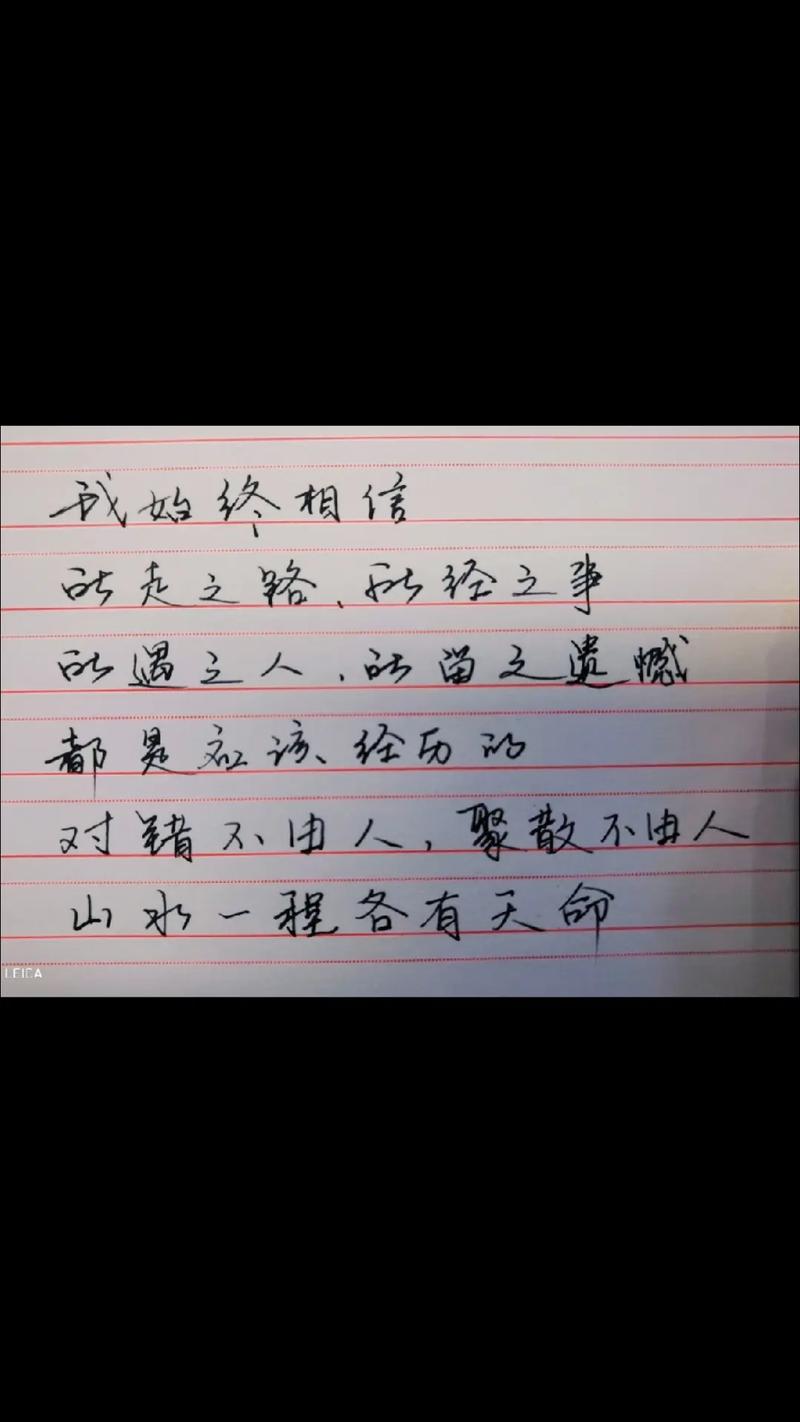 我始终相信
所走之路、所经之事
所遇之人、所留之遗憾
都是应该、经历的
对错不由人，聚散不由人
山水一程各有天命
LEICA